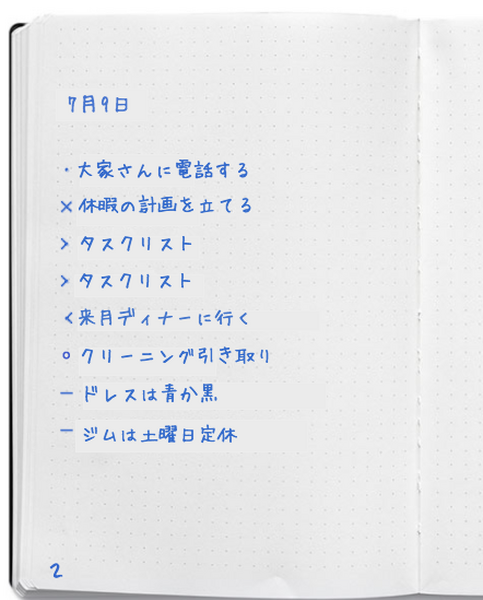 7月9日
・大家さんに電話する
× 休暇の計画を立てる
> タスクリスト
> タスクリスト
< 来月ディナーに行く
○ クリーニング引き取り
― ドレスは青か黒
― ジムは土曜日定休
2